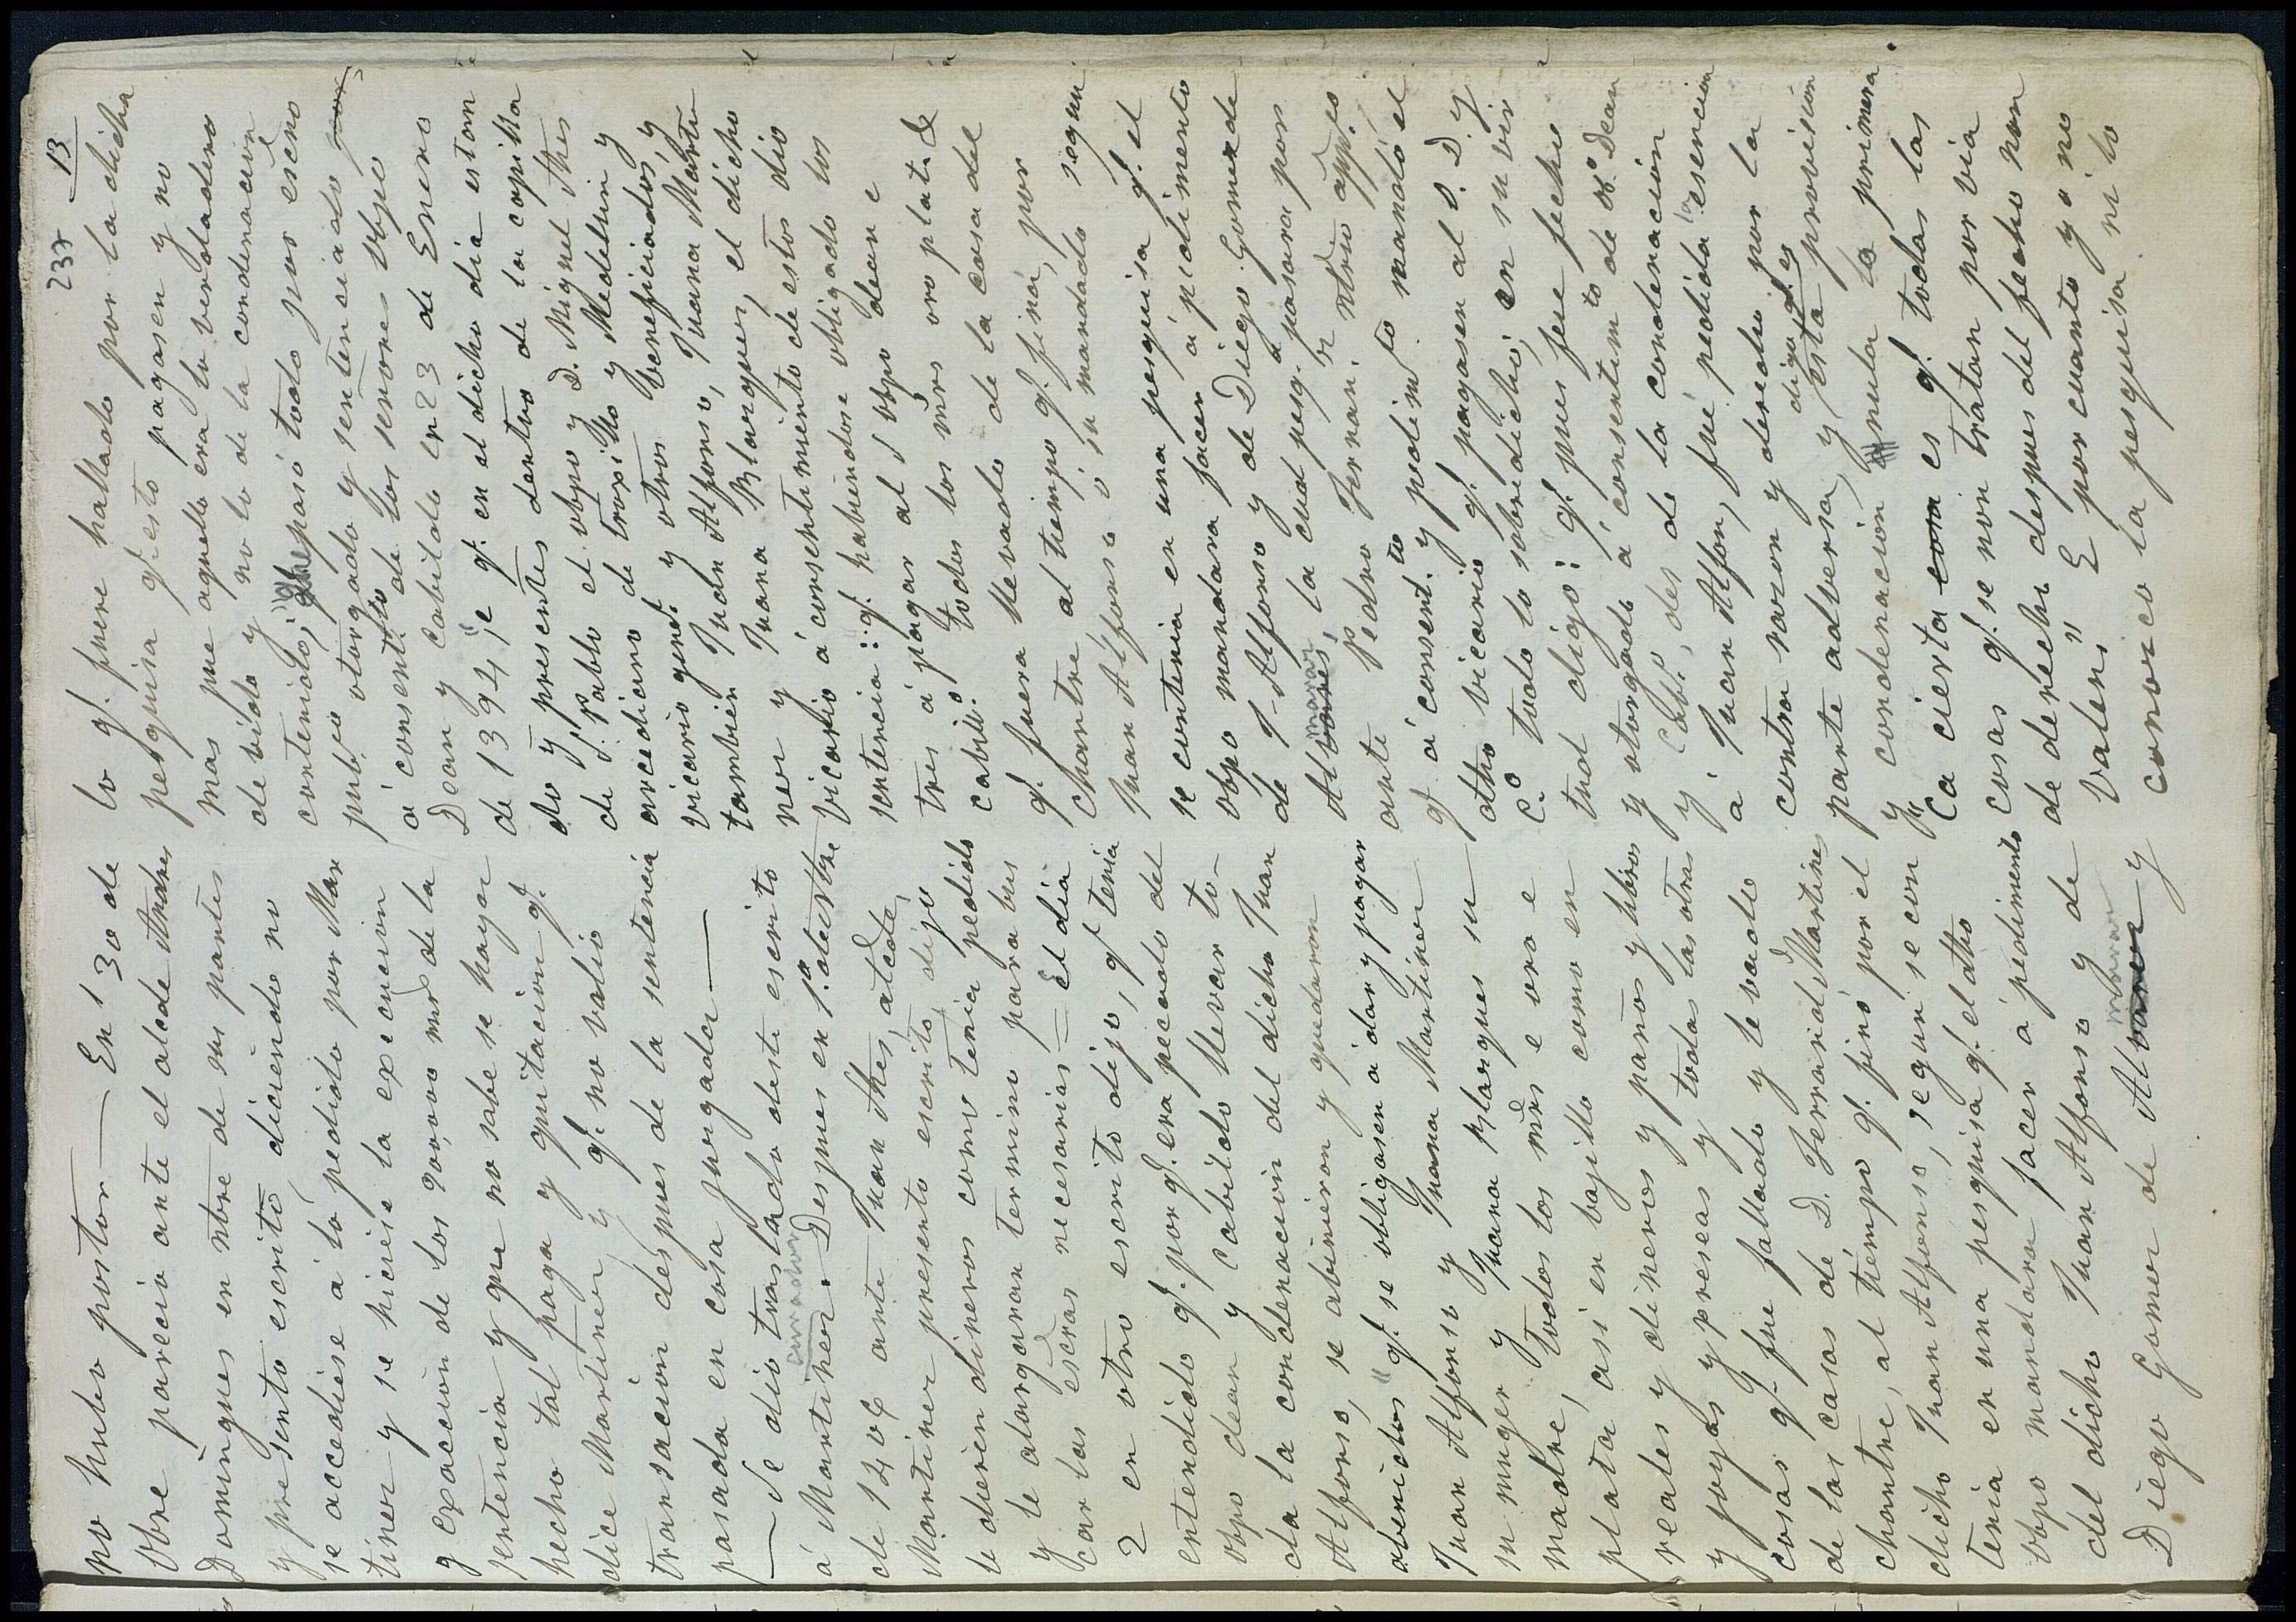 237 13
po hubo postor — En 1º 30 de
Obre pareció ante el alcde Andres
Domingues en nbre de sus partes
y presentó escrito, diciendo no
se accediese á lo pedido por Mar
tinez y se hiciese la execucion
y exaccion de los 90,000 mrs de la
sentencia y que no sabe se haya
hecho tal paga y quitacion q.
dice Martinez, y q. no valio
transacion despues de la sentencia
pasada en cosa jurgada —
— Se dió traslado deste escrito
á Martinez — Despues en 1.º destre
de 140 ante Juan Ames, alcde,
Martinez presentó escrito, dijo
le dieren dineros como tenia pedido
y le alargaran termino para bus
car las escras necesarias = El dia
2 en otro escrito dijo, q. tenia
entendido q. por q. era pecado del
obpo dean y cabildo llevar to-
da la condenacion del dicho Juan
Alfonso, se abinieron y quedaron
abenidos "q. se obligasen a dar y pagar
Juan Alfonso y Juana Martinez
su muger y Juana Blasques su
madre, todos los mrs e oro e
plata, asi en bajilla como en
reales y dineros y paños y libros
y joyas y preseas y todas las otras
cosas q. fue fallado y levado
de las casas de D. Ferrand Martines
chantre, al tiempo q. finó por el
dicho Juan Alfonso, segun se con
tenia en una pesquisa q. el dho
obpo mandara facer á pedimento
del dicho Juan Alfonso y de
Diego Gomez de Alvarez y
lo q. fuere hallado por la dicha
pesquisa q. esto pagasen y no
mas pue aquello era lo verdadero
debido y no lo de la condenacion
contenido; que pasó todo por escno
pubco otorgado y sentenciado por
á consentto de los señores obpo
Dean y cabildo en 23 de Enero
de 1394, "e q. en el dicho dia estan
do y presentes dentro de la capilla
de S. Pablo el obpo y D. Miguel Ames
arcediano de troxillo y Medellin y
vicario genel y otros beneficiados y
tambien Juan Alfonso, Juana Marti
nez y Juana Blasques, el dicho
vicario á consentimiento de estos dio
sentencia: q. habiendose obligado los
tres á pagar al S obpo dean e
cabildo todos los mrs oro plata &
q. fuera llevado de la casa del
Chantre al tiempo q. finó, por
Juan Alfonso ó su mandado segun
se contenia en una pesquisa q. el
obpo mandara facer á pedimento
de J. Alfonso y de Diego Gomez de
Alvares, la cual pesqa pasara por
ante Pedro Ferran. ntrio appco
q. á consentto y pedimto mandó el
dho vicario q. pagasen al S. D. y
C.º todo lo sobredicho; en su vir
tud digo: q. pues fue fecho
y otorgado á consentimto de sr Dean
y Cabº, des de la condenacion
á Juan Alfon, fué pedida la esencion
contra razon y derecho por la
parte adversa, y digo q. es esta provision
y condenacion nula la primera.
"Ca cierta cosa es q. todas las
cosas q. se non tratan por via
de derecho despues del fecho non
valen" E por cuanto yo no
conozco la pesquisa ni lo